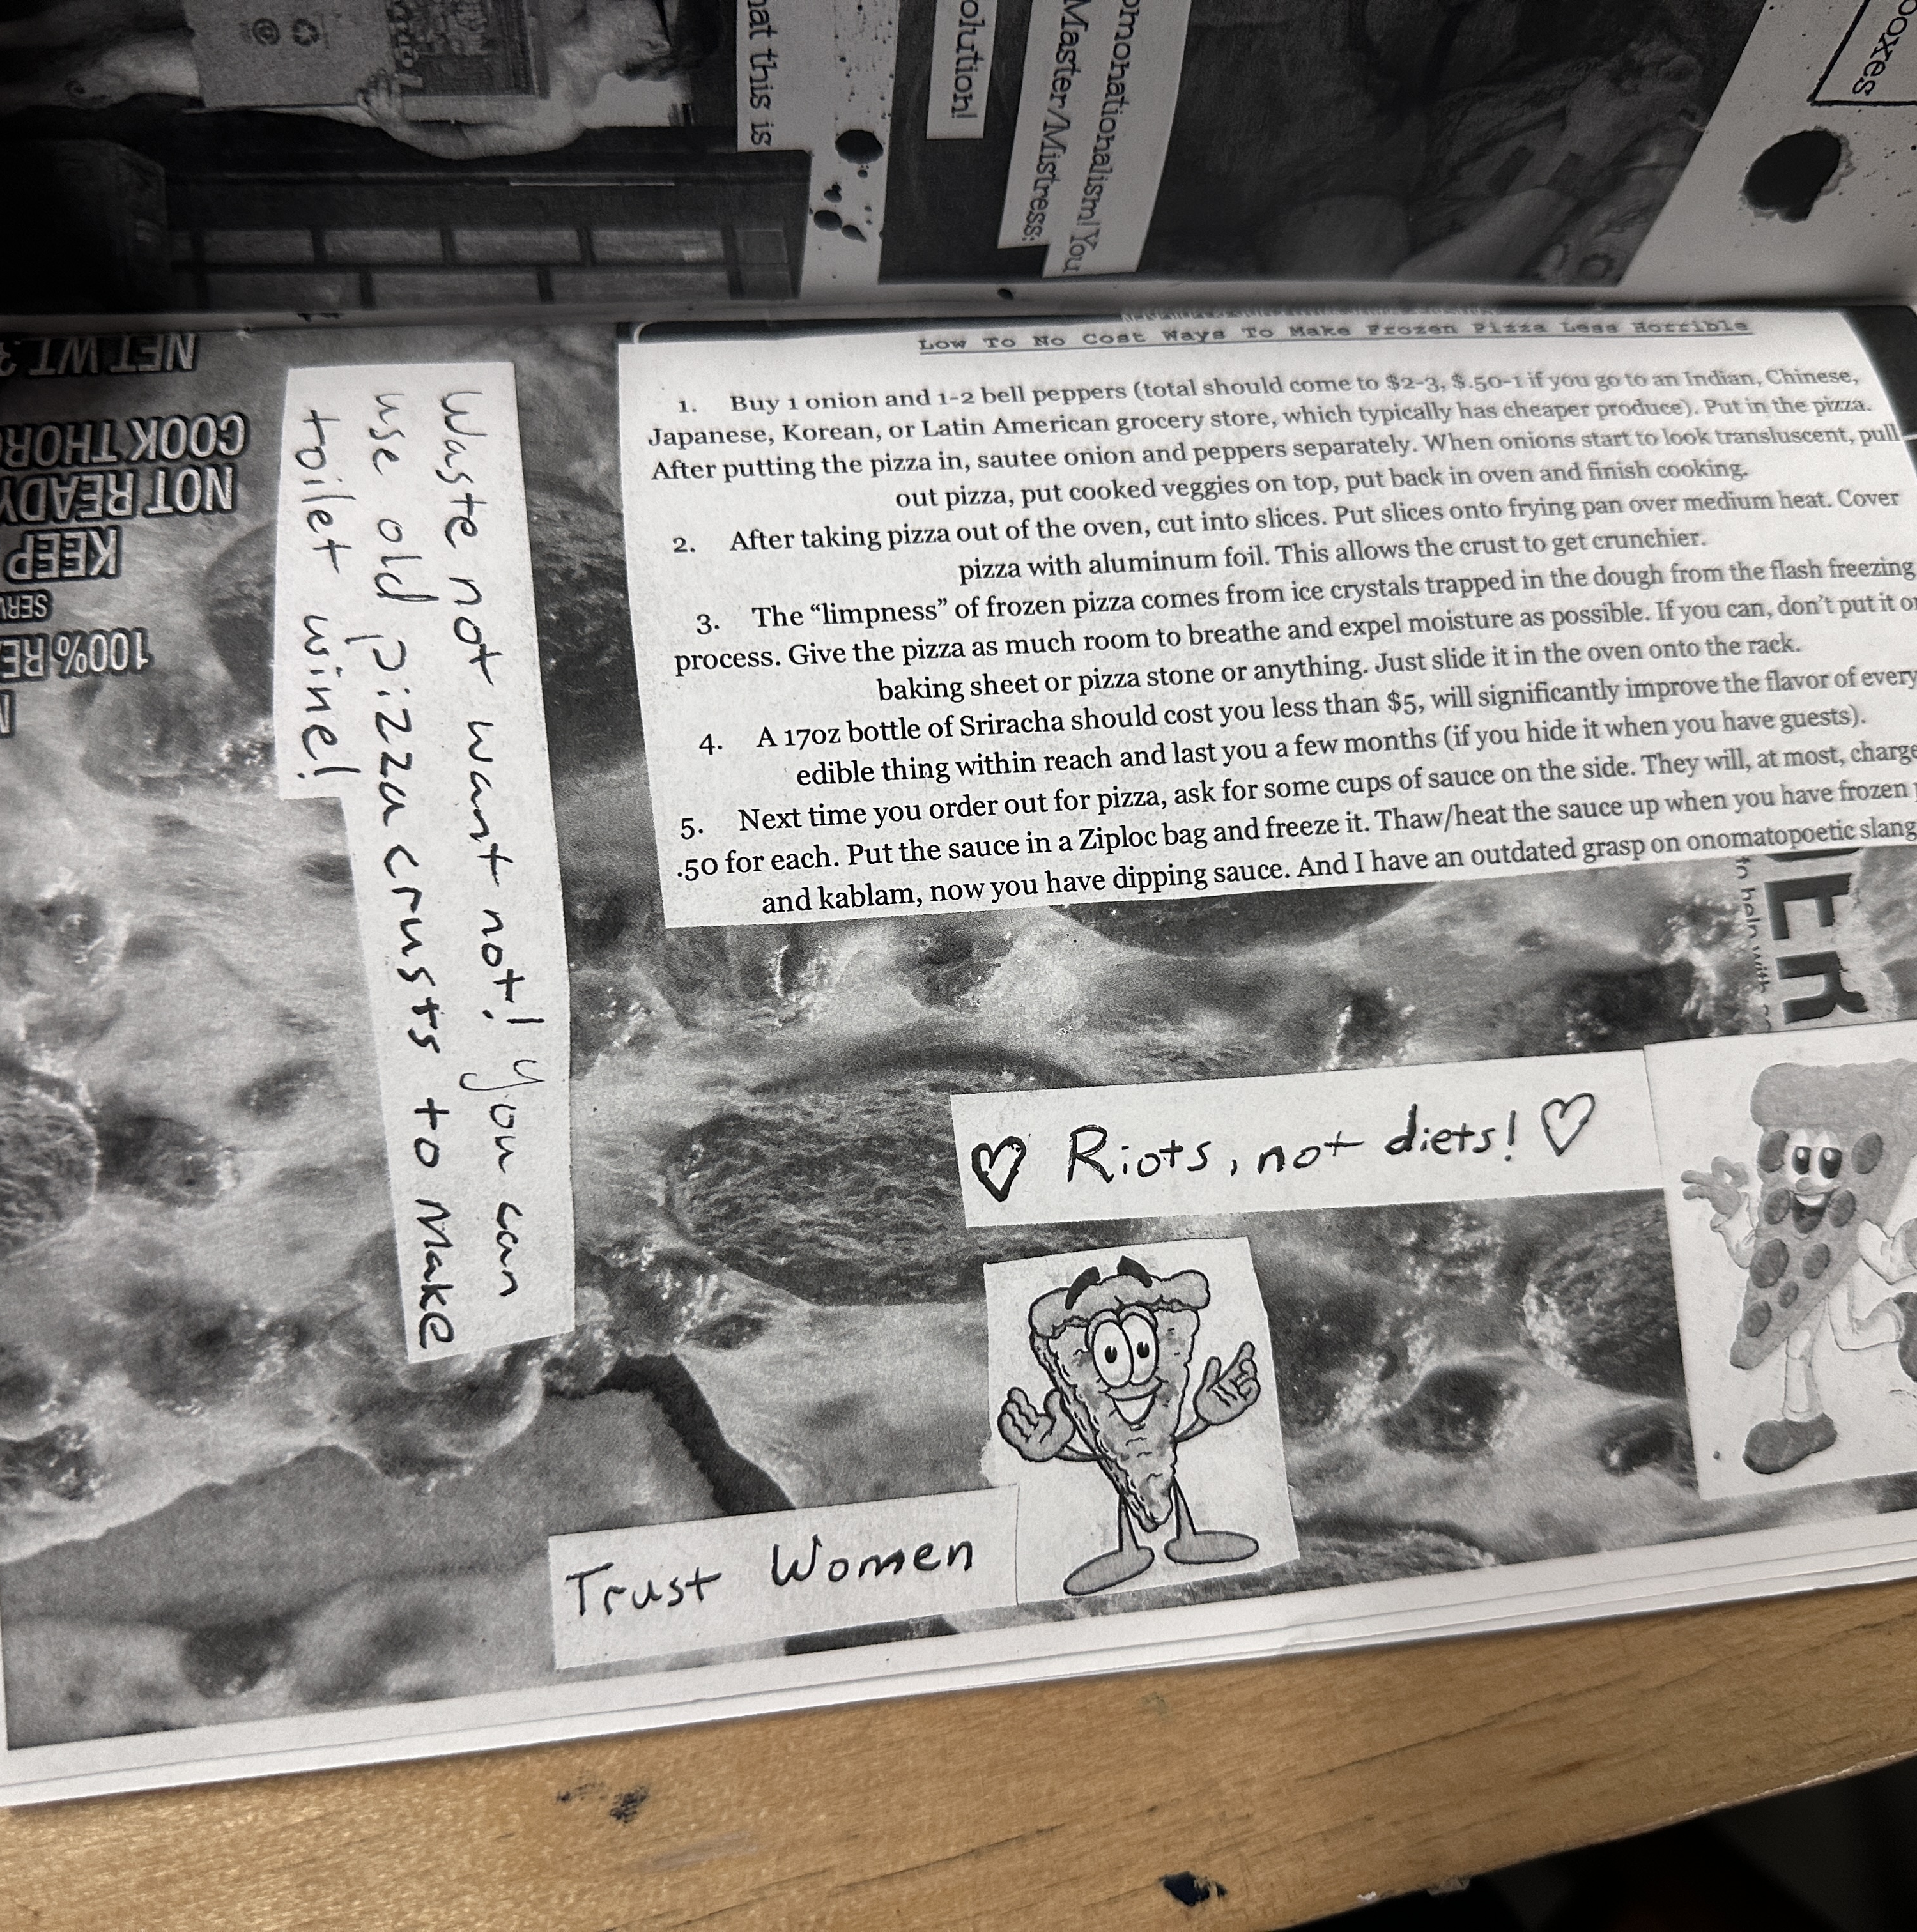 at this is
olution!
Master/Mistress:
omonationalism! You
oxes
Low To No Cost Ways To Make Frozen Pizza Less Horrible
1. Buy 1 onion and 1-2 bell peppers (total should come to $2-3, $.50-1 if you go to an Indian, Chinese,
Japanese, Korean, or Latin American grocery store, which typically has cheaper produce). Put in the pizza.
After putting the pizza in, sautee onion and peppers separately. When onions start to look transluscent, pull
out pizza, put cooked veggies on top, put back in oven and finish cooking.
2. After taking pizza out of the oven, cut into slices. Put slices onto frying pan over medium heat. Cover
pizza with aluminum foil. This allows the crust to get crunchier.
3. The “limpness” of frozen pizza comes from ice crystals trapped in the dough from the flash freezing
process. Give the pizza as much room to breathe and expel moisture as possible. If you can, don’t put it on
baking sheet or pizza stone or anything. Just slide it in the oven onto the rack.
4. A 17oz bottle of Sriracha should cost you less than $5, will significantly improve the flavor of every
edible thing within reach and last you a few months (if you hide it when you have guests).
5. Next time you order out for pizza, ask for some cups of sauce on the side. They will, at most, charge
.50 for each. Put the sauce in a Ziploc bag and freeze it. Thaw/heat the sauce up when you have frozen
and kablam, now you have dipping sauce. And I have an outdated grasp on onomatopoetic slang
Waste not want not! You can
use old pizza crusts to make
toilet wine!
NET WT.
COOK THOR
NOT READY
KEEP
SER
100% RE
ER
♡ Riots, not diets! ♡
Trust Women